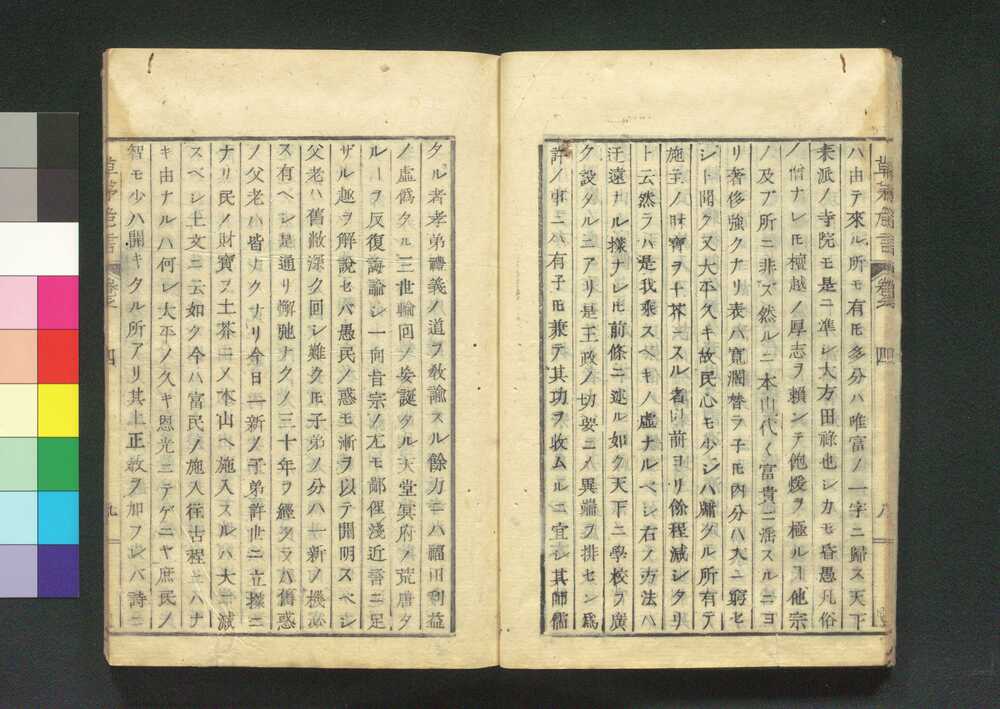 ハ由テ來ル所モ有𪜈多分ハ唯富ノ一字ニ歸ス天下
末派ノ寺院モ是ニ準シ大方田祿也シカモ昏愚凡俗
ノ僧ナレ𪜈檀越ノ厚志ヲ頼ンテ飽煖ヲ極ルヿ他宗
ノ及ブ所ニ非ズ然ルニ本山代〱富貴ニ溺スルニヨ
リ奢侈強クナリ表ハ寛濶替ラ子𪜈内分ハ大ニ窮セ
シト聞ク又大平久キ故民心モ少シハ牖クル所有テ
施主ノ財寶ヲ土芥ニスル者以前ヨリ餘程減シタリ
ト云然ラハ是我乘スベキノ虚ナルベシ右ノ方法ハ
迂遠ナル様ナレ𪜈前條ニ述ル如ク天下ニ學校ヲ廣
ク設タルニアリ是王政ノ切要ニ〆異端ヲ排セン爲
許ノ事ニハ有子𪜈兼テ其功ヲ收ムルニ宜シ其師儒
タル者孝弟禮義ノ道ヲ敎諭スル餘力ニハ福田利益
ノ虚僞タル三世輪回ノ妄誕タル天堂冥府ノ荒唐タ
ルヿヲ反復誨諭シ一向宗ノ尤モ鄙俚淺近言ニ足
ザル趣ヲ解説セバ愚民ノ惑モ漸ヲ以テ開明スベシ
父老ハ舊敝深ク回シ難ク𪜈子弟ノ分ハ一新ノ機必
ス有ベシ是通リ懈弛ナク〆三十年ヲ經タラバ舊惑
ノ父老ハ皆ナクナリ今日一新ノ子弟許世ニ立様ニ
ナリ民ノ財寶ヲ土芥ニ〆本山ヘ施入スルハ大ニ減
スベシ上文ニ云如ク今ハ富民ノ施入徃古程ニハナ
キ由ナルハ何レ大平ノ久キ恩光ニテゲニヤ庶民ノ
智モ少ハ開キタル所アリ其上正敎ヲ加フレバ詩ニ
草茅危言
四
八
四
九